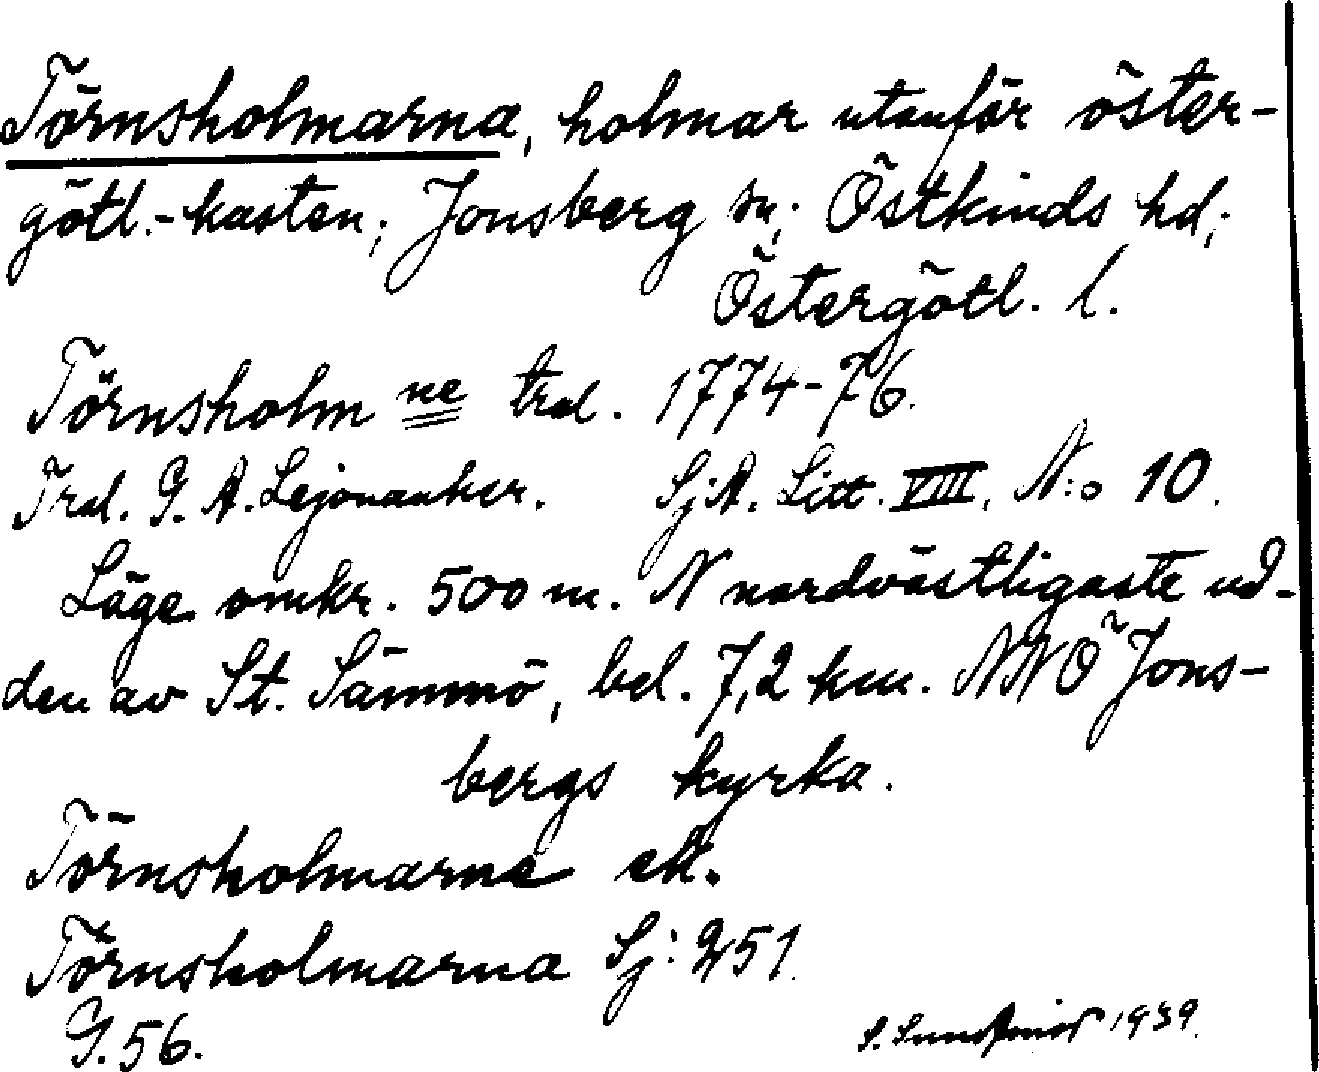 Törnsholmarna, holmar utanför öster-
götl.-kusten; Jonsberg sn; Östkinds hd;
Östergötl. l.
Törnsholm ne trol. 1774-76.
Trol. G. A. Lejonanker. SjA. Litt. VIII. N:o 10.
Läge omkr. 500 m. N nordvästligaste ud-
den av St. Sämmö, bel. 7,2 km. NNÖ Jons-
bergs kyrka.
Törnsholmarne ek.
Törnsholmarna Sj: 251.
G. 56.
S. 1939.